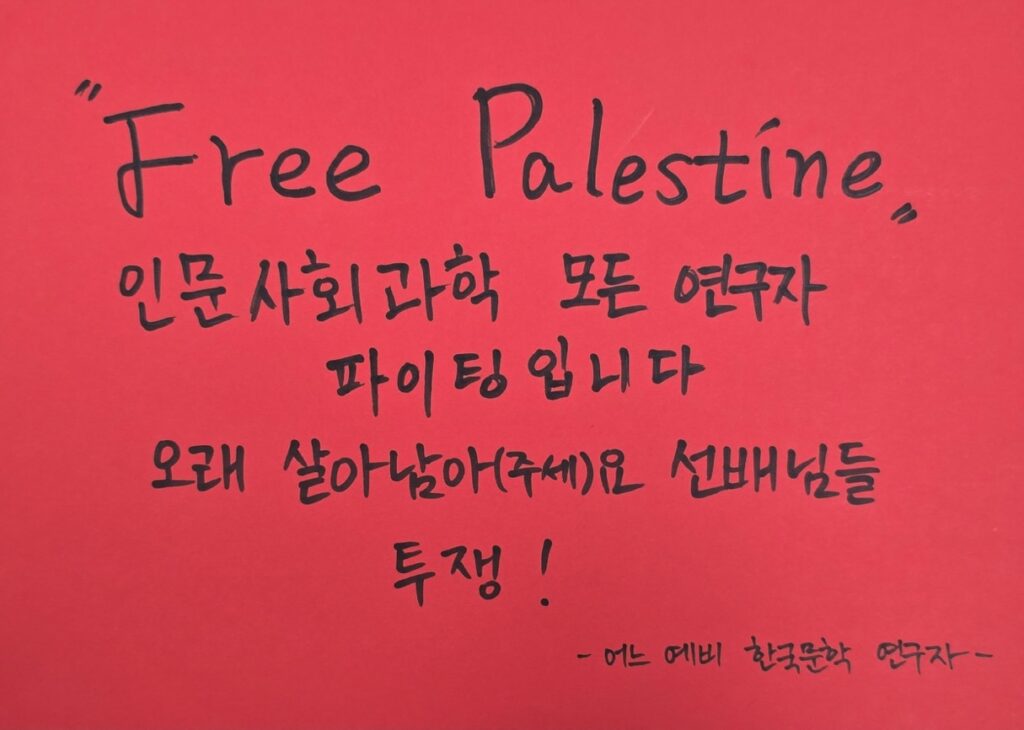 "Free Palestine"
인문사회과학 모든 연구자
파이팅입니다
오래 살아남아(주세)요 선배님들
투쟁!
- 어느 예비 한국문학 연구자 -